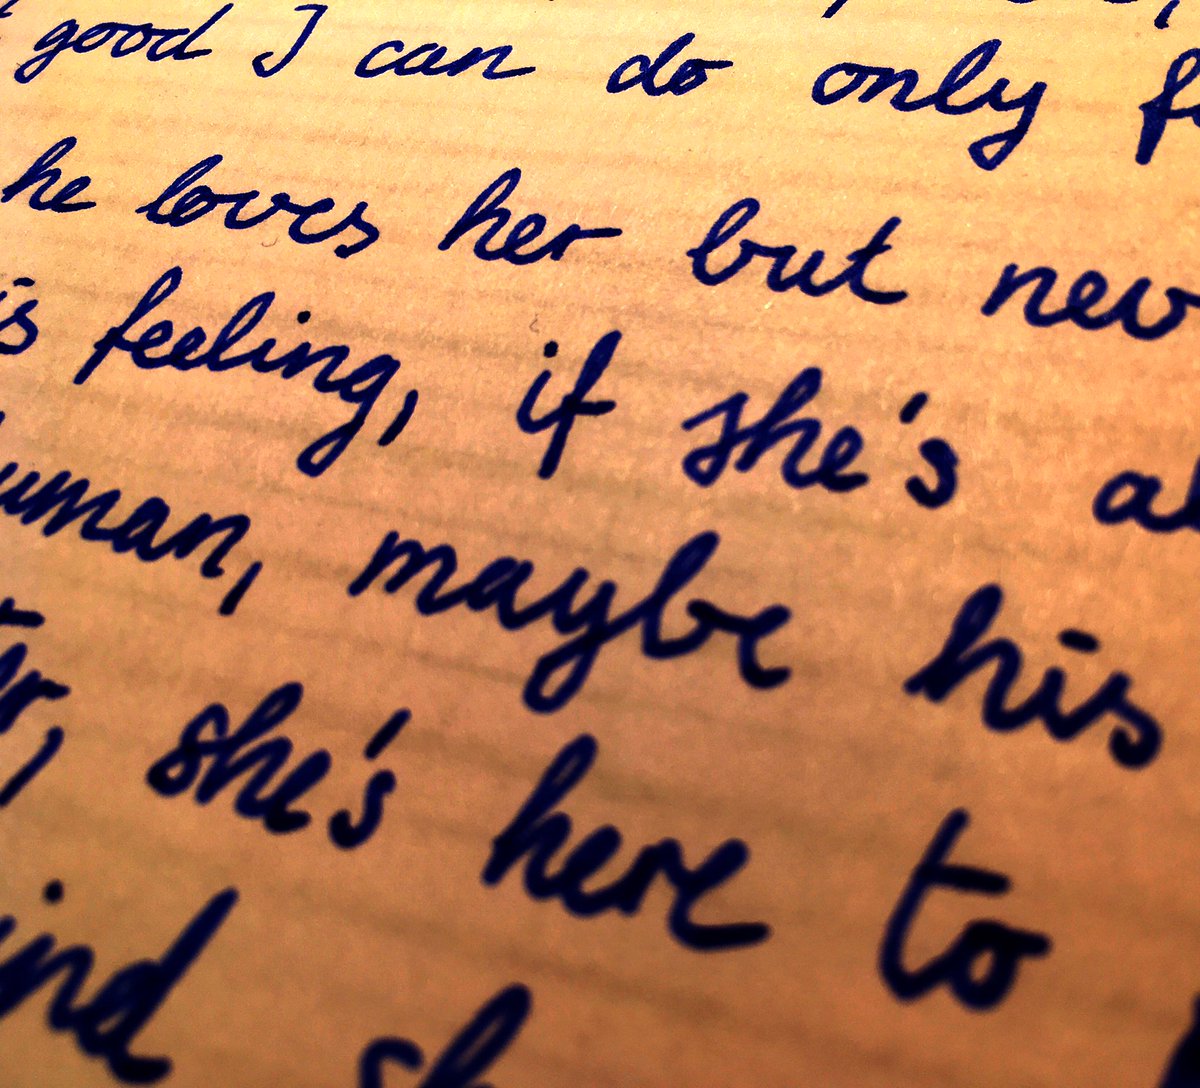 good I can do only
he loves her but
feeling, if she's
maybe his
she's here to